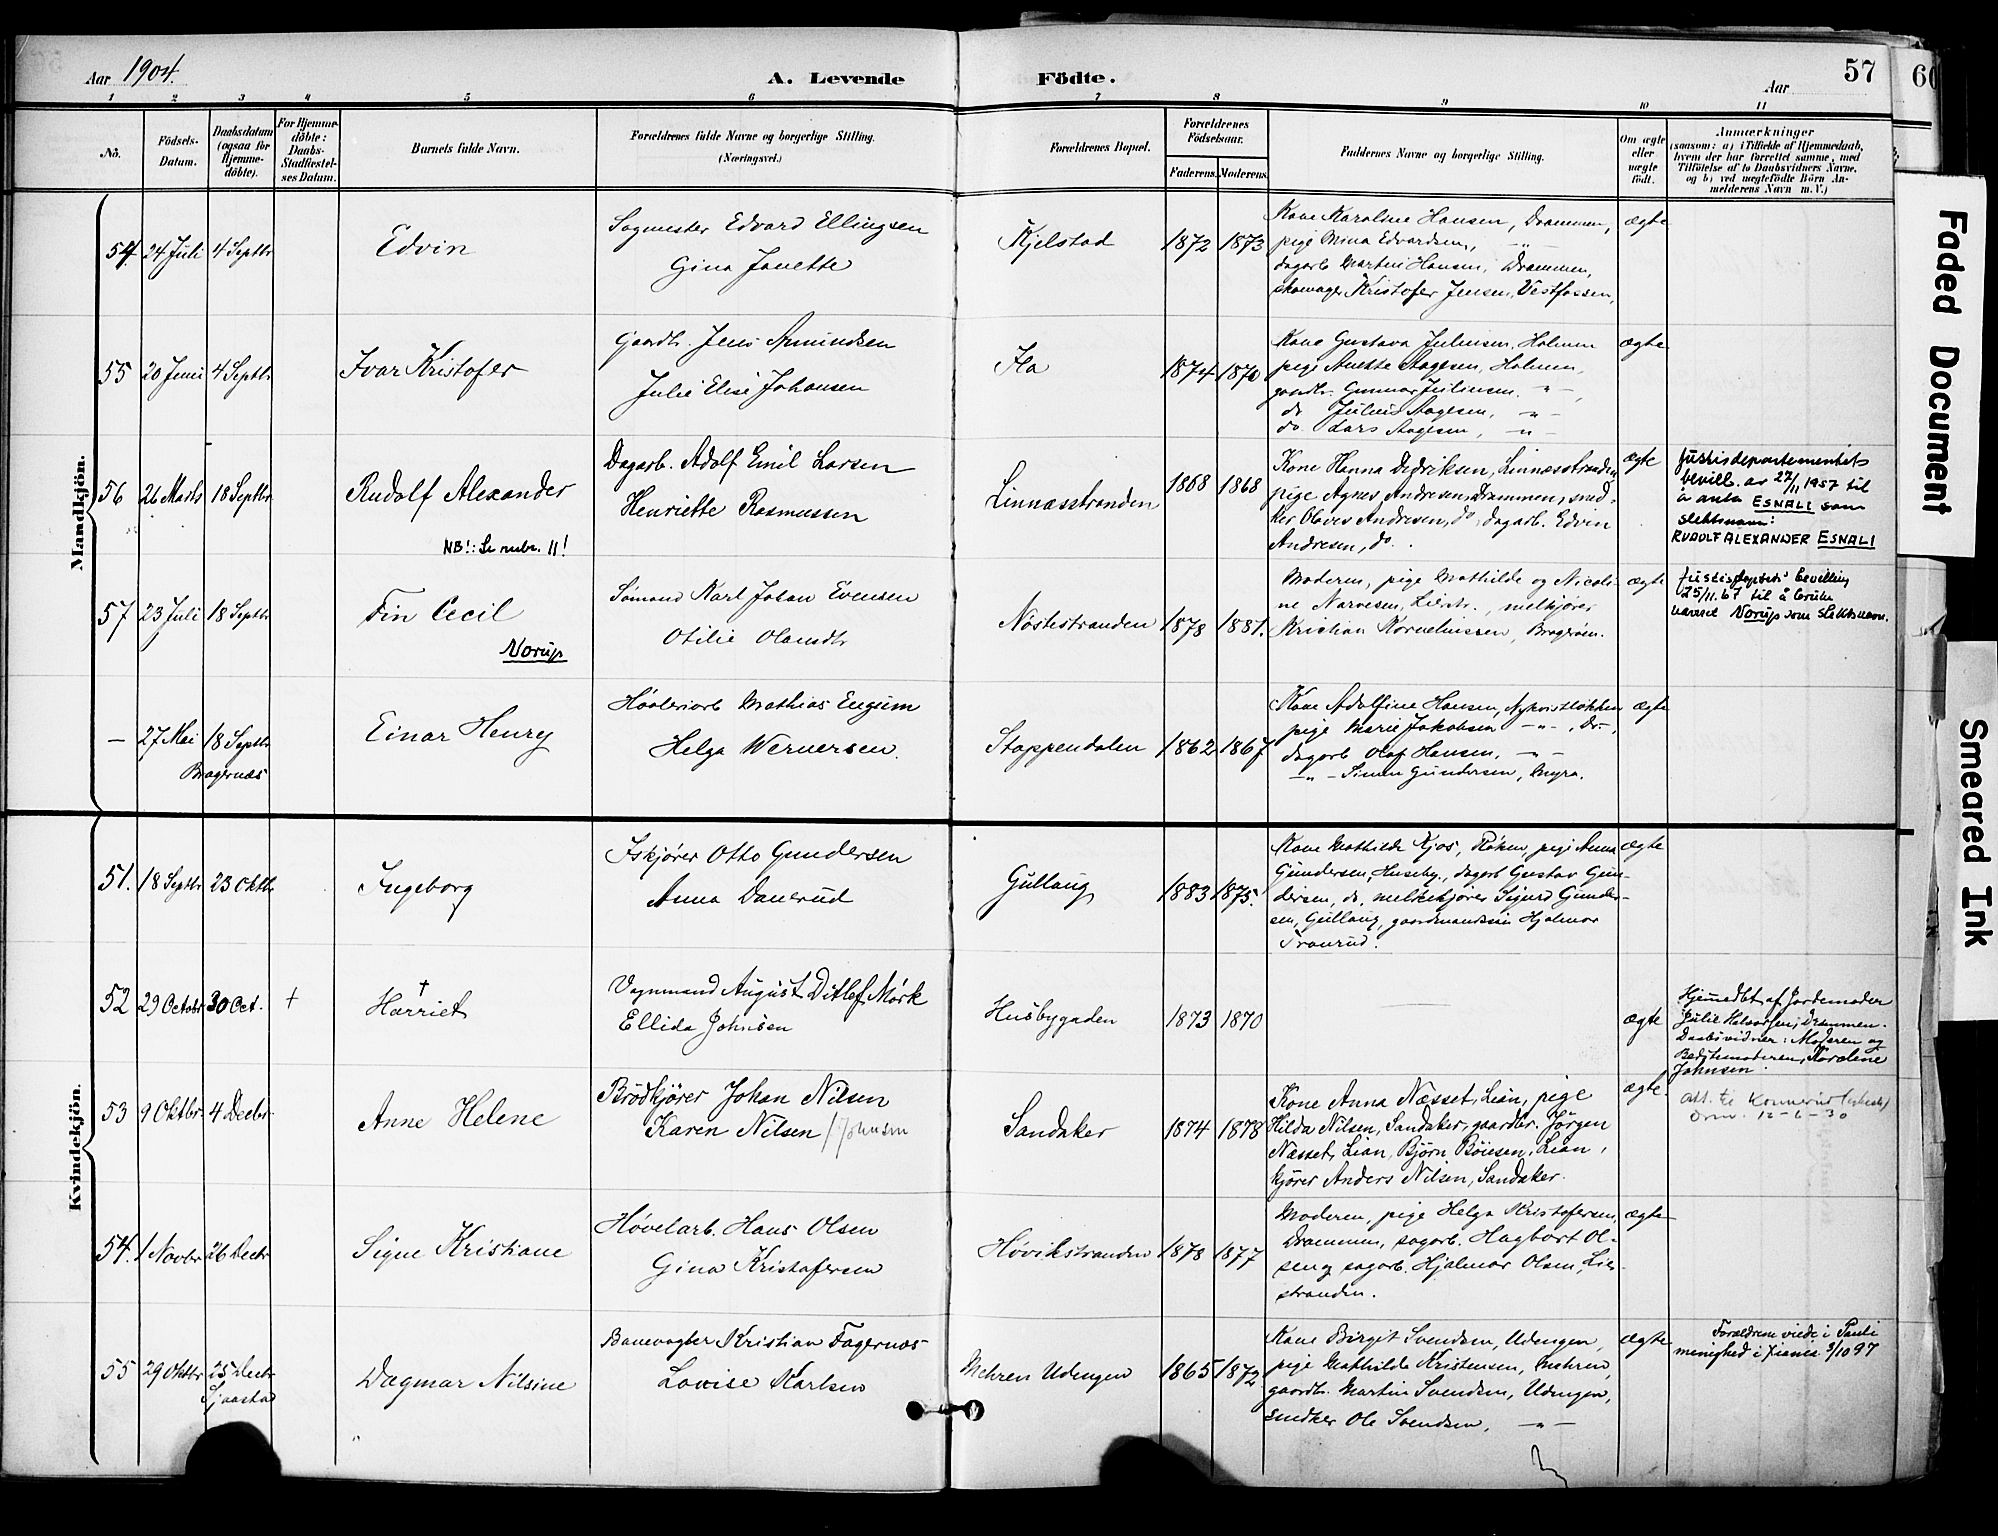 Aar 1904.
A. Levende Födte.
Aar
57
60
1 2 3 4 5 6 7 8 9 10 11
Nô.
Födsels-Datum.
Daabsdatum (ogsaa for Hjemme-döbte).
For Hjemme-döbte: Daabs-Stadfæstel-ses Datum.
Barnets fulde Navn.
Forældrenes fulde Navne og borgerlige Stilling. (Næringsvei.)
Forældrenes Bopæl.
Forældrenes Födselsaar.
Faderens. Moderens.
Faddernes Navne og borgerlige Stilling.
Om ægte eller uægte födt.
Anmærkninger
(saasom: a) i Tilfælde af Hjemmedaab,
hvem der har forrettet samme, med
Tilföielse af to Daabsvidners Navne.
og b) ved uægtefödte Börn An-
melderens Navn m. V.)
Mandkjön.
54. 24 Juli 4 Septbr
Edvin
Sagmester Edvard Ellingsen
Gina Janette
Kjelstad
1872 1873
Kone Karoline Hansen, Drammen,
pige Mina Edvardsen, -"-
dagarb Martin Hansen, Drammen,
skomager Kristofer Jensen, Vestfossen,
ægte
55 20 Juni 4 Septbr
Ivar Kristofer
Gaardbr. Jens Amundsen
Julie Elise Johansen
Ila
1874 1870
Kone Gustava Juliusen, Holmen
pige Anette Aagesen, Holmen,
gaardbr. Gunnar Juliusen. -"-,
do Julius Aagesen, -"-
do. Lars Aagesen, -"-
ægte
56 26 Marts 18 Septbr
Rudolf Alexander
NB!: Se rubr. 11!
Dagarb. Adolf Emil Larsen
Henriette Rasmussen
Linnæsstranden
1868 1868
Kone Hanna Dedriksen, Linnæsstranden
pige Agnes Andresen, Drammen, sned-
ker Olaves Andresen, do, dagarb. Edvin
Andresen, do.
ægte
Justisdepartementets
bevill. av 27/11 1957 til
å anta ESNALI som
slektsnavn:
RUDOLF ALEXANDER ESNALI
57 23 Juli 18 Septbr
Fin Cecil
Norup
Sømand Karl Johan Evensen
Otilie Olandt
Nøstestranden
1878 1881.
Moderen, pige Mathilde og Nicoli-
ne Narvesen, Lierstr., melkjører
Kristian Korneliussen, Bragerøen.
ægte
Justisdeptets bevilling
25/11.67 til å bruke
navnet Norup som slektsnavn.
– 27 Mai 18 Septbr
Bragernæs
Einar Henry
Høvleriarb Mathias Engum
Helga Wernersen.
Stoppendalen
1862 1867
Kone Adolfine Hansen, Nykvistløkken
pige Marie Jakobsen -"-, Dr.,
dagarb Olaf Hansen, -"-
-"- Simen Gundersen, Myra.
ægte
Kvindekjön.
51. 18 Septbr 23 Oktbr
Ingeborg
Iskjører Otto Gundersen
Anna Danerud
Gullaug
1883 1875.
Kone Mathilde Kjos, Røken, pige Anna
Gundersen, Huseby, dagarb Gustav Gun-
dersen, do, melkekjører Sigurd Gunder-
sen, Gullaug, gaardmandssøn Hjalmar
Tranrud.
ægte
52 29 Octobr 30 Oct. +
Harriet
Vognmand August Ditlef Mörk
Ellida Johnsen
Husbygaden
1873 1870
ægte
Hjemmedbt af Jordemoder
Julie Halvorsen, Drammen.
Daabsvidner: Moderen og
Bedstemoderen, Karoline
Johnsen.
53 9 Oktbr 4 Decbr
Anne Helene
Brödkjører Johan Nilsen
Karen Nilsen / Johnsen
Sandaker
1874 1878
Kone Anna Næsset, Lian, pige
Hilda Nilsen, Sandaker, gaardbr. Jörgen
Næsset, Lian, Björn Böiesen, Lian,
kjører Anders Nilsen, Sandaker.
ægte.
Att. til Konnerud
Drm. 12-6-30
54. 1 Novbr 26 Decbr
Signe Kristiane
Høvelarb. Hans Olsen
Gina Kristofersen
Høvikstranden
1878 1877
Moderen, pige Helga Kristofersen,
Drammen, sagarb. Hagbart Ol-
sen og sagarb. Hjalmar Olsen, Lier-
stranden.
ægte
55 29 Oktbr 25 Decbr
Sjaastad
Dagmar Nilsine
Banevogter Kristian Fagernæs
Lovise Karlsen
Mehren Udengen
1865 1872.
Kone Birgit Svendsen, Udengen,
pige Mathilde Kristensen, Mehren,
gaardbr. Martin Svendsen, Udengen,
snedker Ole Svendsen, -"-
ægte
Forældrene viede i Pauli
menighed i Xiania 3/10 97
Faded Document
Smeared Ink